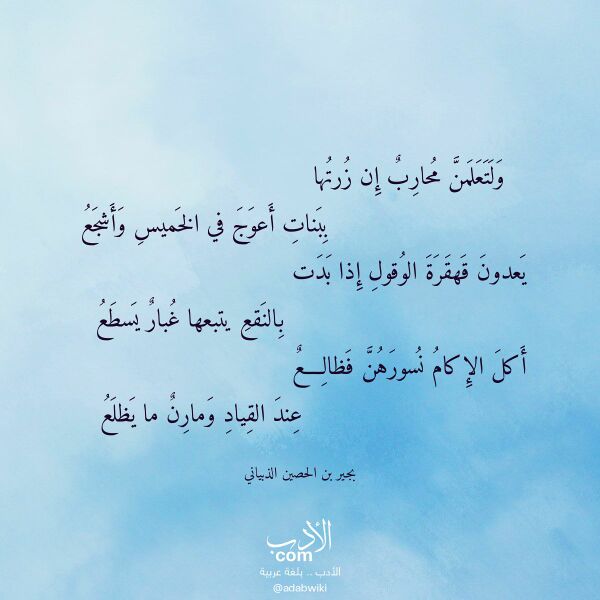 وَلَتَعَلَمَنَّ مُحارِبٌ إِن زُرتُها
بِبَناتِ أَعوَجَ في الخَميسِ وَأَشجَعُ
يَعدونَ قَهقَرَةَ الوُقولِ إِذا بَدَت
بِالنَقعِ يتبعها غُبارٌ يَسطَعُ
أَكلَ الإِكامُ نُسورَهُنَّ فَظالِـــعٌ
عِندَ القِيادِ وَمارِنٌ ما يَظلَعُ
بجير بن الحصين الذبياني
الأدب
com
الأدب .. بلغة عربية
@adabwiki